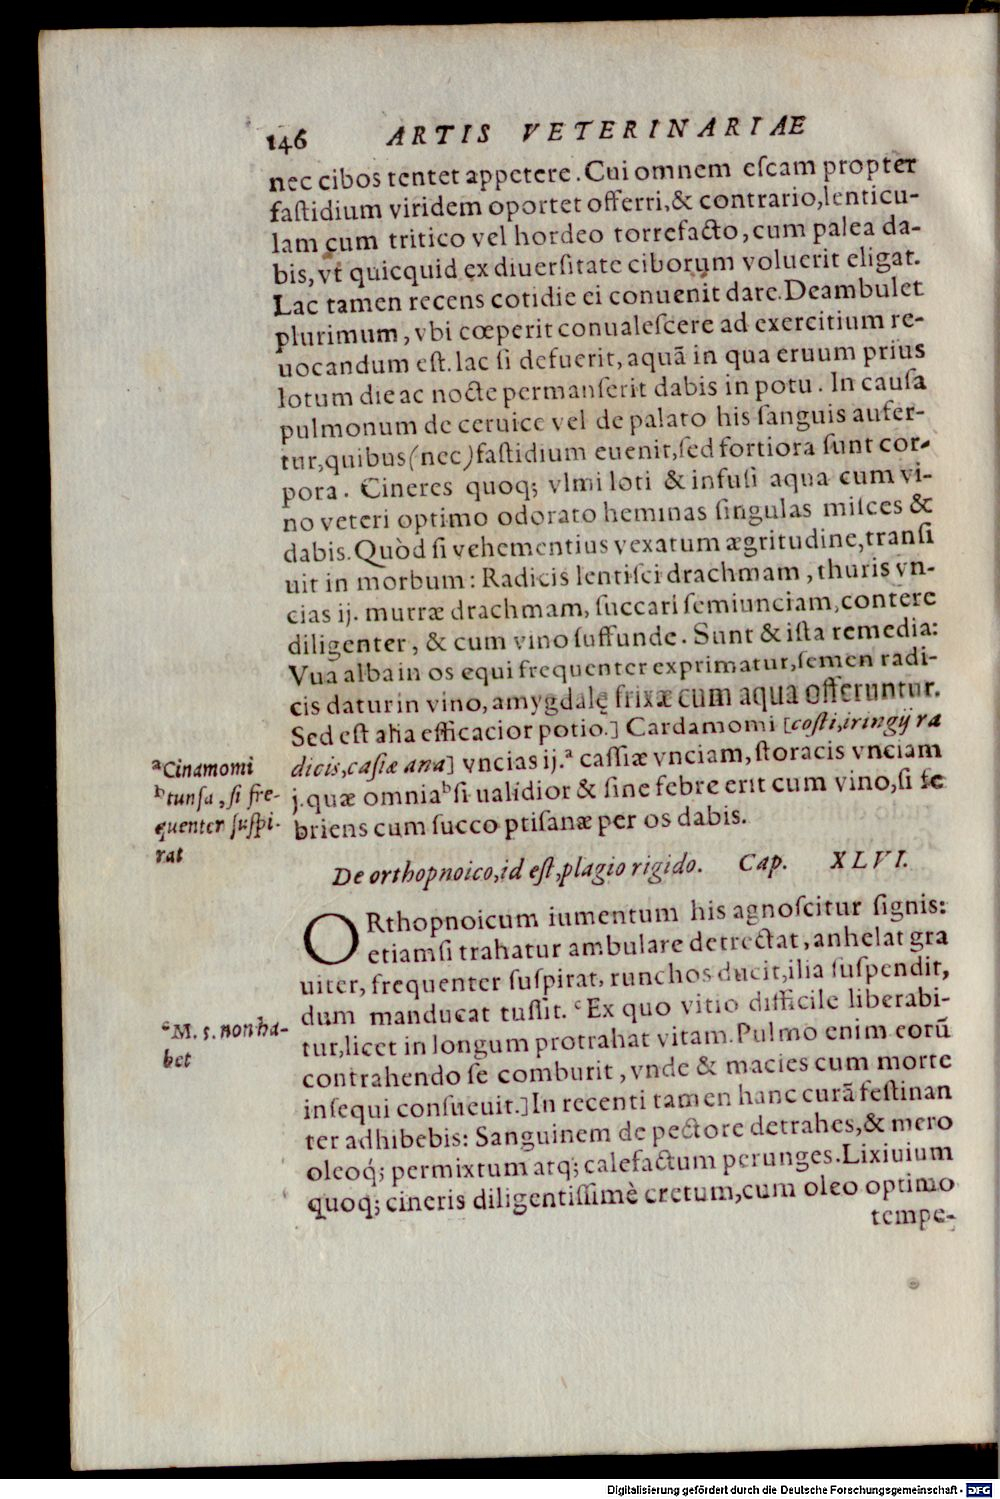 146 ARTIS VETERINARIAE
nec cibos tentet appetere. Cui omnem eſcam propter
faſtidium viridem oportet offerri, & contrario, lenticu-
lam cum tritico vel hordeo torrefacto, cum palea da-
bis, vt quicquid ex diuerſitate ciborum voluerit eligat.
Lac tamen recens cotidie ei conuenit dare. Deambulet
plurimum, vbi cœperit conualeſcere ad exercitium re-
uocandum eſt. lac ſi defuerit, aquã in qua eruum prius
lotum die ac nocte permanſerit dabis in potu. In cauſa
pulmonum de ceruice vel de palato his ſanguis aufer-
tur, quibus (nec) faſtidium euenit, ſed fortiora ſunt cor-
pora. Cineres quoq; vlmi loti & infuſi aqua cum vi-
no veteri optimo odorato heminas ſingulas miſces &
dabis. Quòd ſi vehementius vexatum ægritudine, tranſi
uit in morbum: Radicis lentiſci drachmam, thuris vn-
cias ij. murræ drachmam, ſuccari ſemiunciam, contere
diligenter, & cum vino ſuffunde. Sunt & iſta remedia:
Vua alba in os equi frequenter exprimatur, ſemen radi-
cis datur in vino, amygdalę frixæ cum aqua offeruntur.
Sed eſt alia efficacior potio.] Cardamomi [coſti, iringij ra
dicis, caſiæ ana] vncias ij.ª caſſiæ vnciam, ſtoracis vnciam
j. quæ omniaᵇ ſi ualidior & ſine febre erit cum vino, ſi fe
briens cum ſucco ptiſanæ per os dabis.
ªCinamomi
ᵇtunſa, ſi fre-
quenter ſuſpi-
rat
De orthopnoico, id eſt, plagio rigido. Cap. XLVI.
ORthopnoicum iumentum his agnoſcitur ſignis:
etiamſi trahatur ambulare detrectat, anhelat gra
uiter, frequenter ſuſpirat, runchos ducit, ilia ſuſpendit,
dum manducat tuſſit. ᶜEx quo vitio difficile liberabi-
tur, licet in longum protrahat vitam. Pulmo enim eorũ
contrahendo ſe comburit, vnde & macies cum morte
inſequi conſueuit.] In recenti tamen hanc curã feſtinan
ter adhibebis: Sanguinem de pectore detrahes, & mero
oleoq́; permixtum atq; calefactum perunges. Lixiuium
quoq; cineris diligentiſſimè cretum, cum oleo optimo
tempe-
ᶜM. s. non ha-
bet
Digitalisierung gefördert durch die Deutsche Forschungsgemeinschaft - DFG